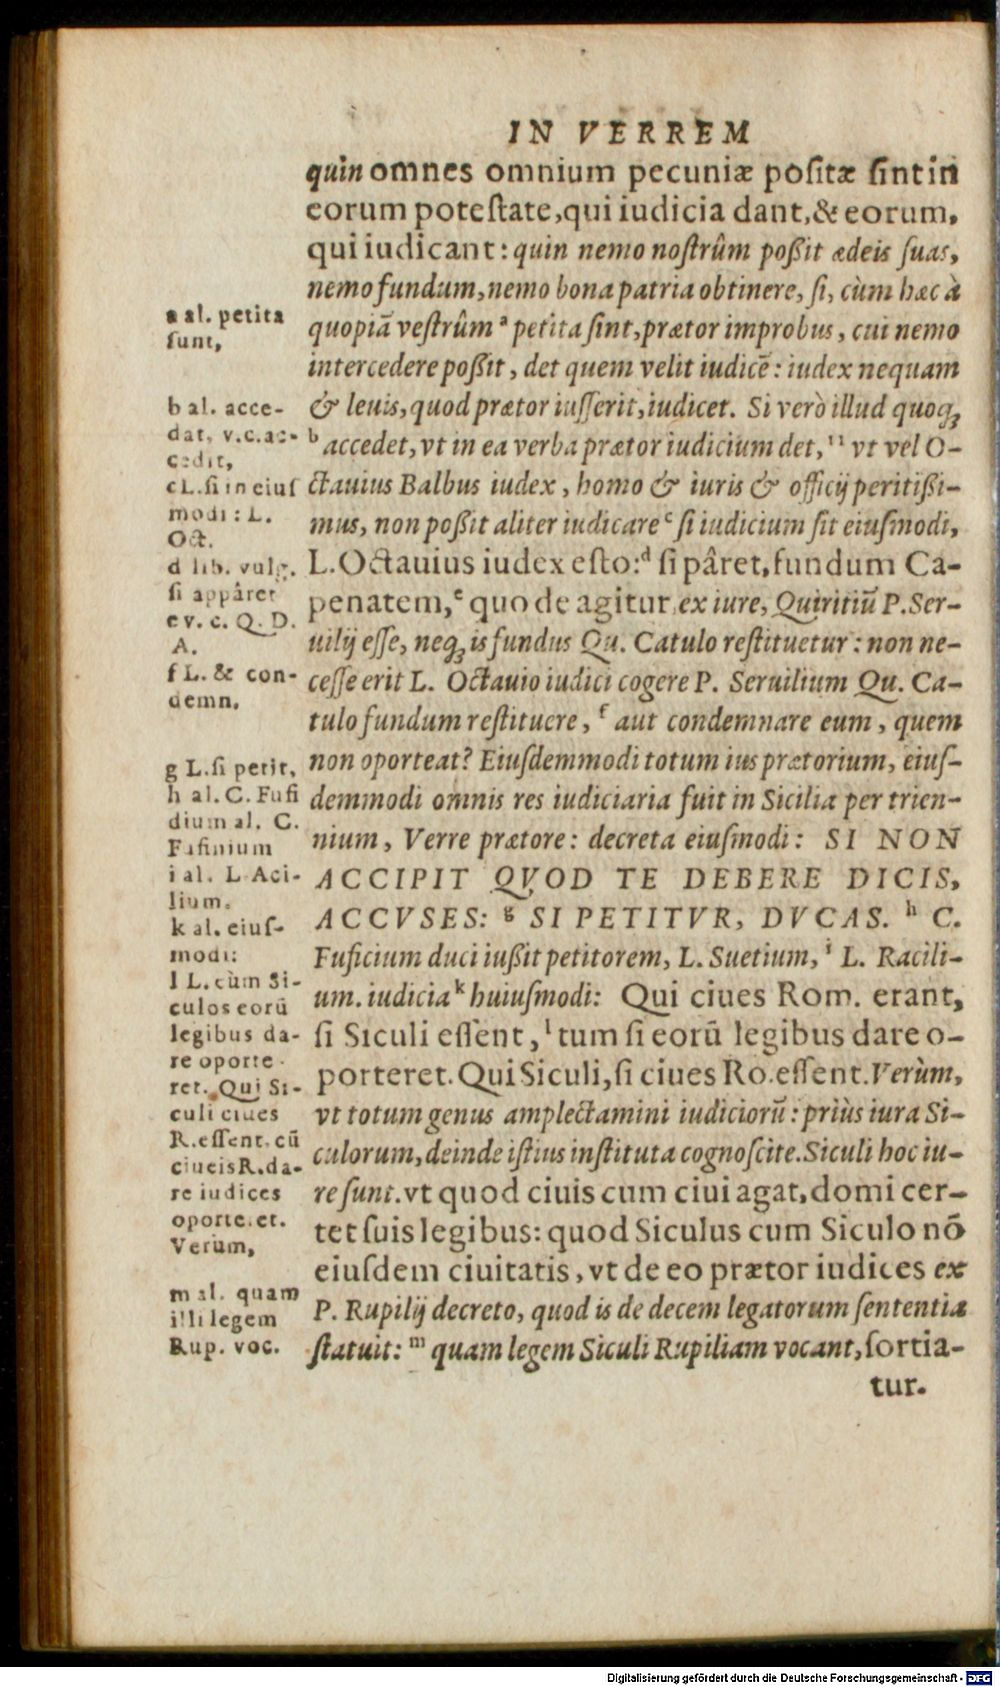 IN VERREM
quin omnes omnium pecuniæ poſitæ ſint in
eorum poteſtate, qui iudicia dant, & eorum,
qui iudicant: quin nemo noſtrûm poßit ædeis ſuas,
nemo fundum, nemo bona patria obtinere, ſi, cùm hæc à
quopiã veſtrûm ª petita ſint, prætor improbus, cui nemo
intercedere poßit, det quem velit iudicẽ: iudex nequam
& leuis, quod prætor iuſſerit, iudicet. Si verò illud quoqꝫ
ᵇ accedet, vt in ea verba prætor iudicium det, '' vt vel O-
ctauius Balbus iudex, homo & iuris & officij peritißi-
mus, non poßit aliter iudicare ᶜ ſi iudicium ſit eiuſmodi,
L. Octauius iudex eſto: ᵈ ſi pâret, fundum Ca-
penatem, ᵉ quo de agitur ex iure, Quiritiũ P. Ser-
uilij eſſe, neqꝫ is fundus Qu. Catulo reſtituetur: non ne-
ceſſe erit L. Octauio iudici cogere P. Seruilium Qu. Ca-
tulo fundum reſtituere, ᶠ aut condemnare eum, quem
non oporteat? Eiuſdemmodi totum ius prætorium, eiuſ-
demmodi omnis res iudiciaria fuit in Sicilia per trien-
nium, Verre prætore: decreta eiuſmodi: SI NON
ACCIPIT QVOD TE DEBERE DICIS,
ACCVSES: ᵍ SI PETITVR, DVCAS. ʰ C.
Fuficium duci iußit petitorem, L. Suetium, ⁱ L. Racili-
um. iudicia ᵏ huiuſmodi: Qui ciues Rom. erant,
ſi Siculi eſſent, ˡ tum ſi eorũ legibus dare o-
porteret. Qui Siculi, ſi ciues Ro. eſſent. Verùm,
vt totum genus amplectamini iudiciorũ: priùs iura Si-
culorum, deinde iſtius inſtituta cognoſcite. Siculi hoc iu-
re ſunt. vt quod ciuis cum ciui agat, domi cer-
tet ſuis legibus: quod Siculus cum Siculo nõ
eiuſdem ciuitatis, vt de eo prætor iudices ex
P. Rupilij decreto, quod is de decem legatorum ſententia
ſtatuit: ᵐ quam legem Siculi Rupiliam vocant, ſortia-
tur.
a al. petita
ſunt,
b al. acce-
dat, v.c.ac-
cedit,
c L. ſi in eiuſ
modi: L.
Oct.
d lib. vulg.
ſi appâret
e v. c. Q. D.
A.
f L. & con-
demn.
g L. ſi petit,
h al. C. Fufi
dium al. C.
Fufinium
i al. L Aci-
lium.
k al. eiuſ-
modi:
l L. cùm Si-
culos eorũ
legibus da-
re oporte
ret. Qui Si-
culi ciues
R. eſſent. cũ
ciueis R. da-
re iudices
oporteret.
Verùm,
m al. quam
illi legem
Rup. voc.
Digitalisierung gefördert durch die Deutsche Forschungsgemeinschaft - DFG